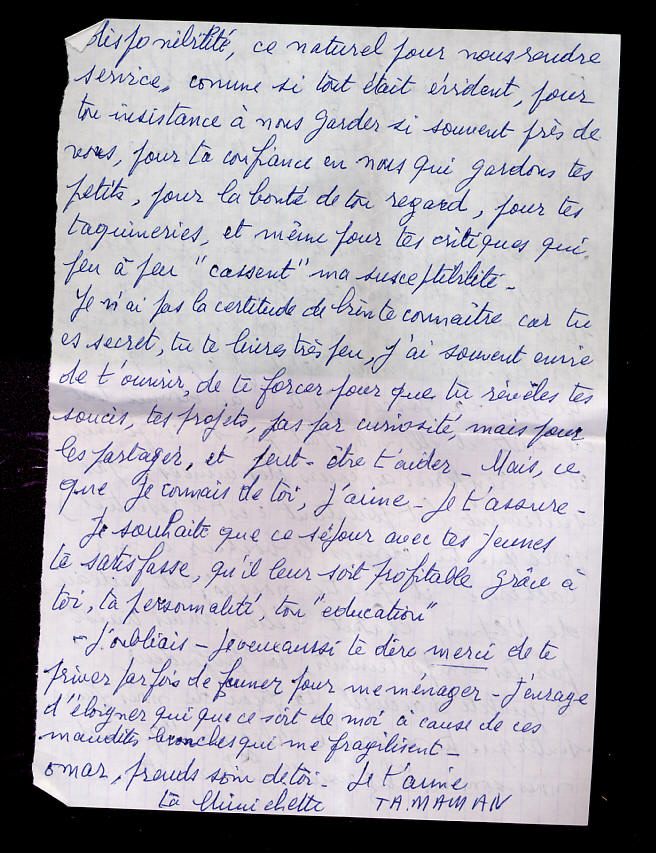 disponibilité, ce naturel pour nous rendre
service, comme si tout était évident, pour
ton insistance à nous garder si souvent près de
vous, pour ta confiance en nous qui gardons tes
petits, pour la bonté de ton regard, pour tes
taquineries, et même pour tes critiques qui
peu à peu "cassent" ma susceptibilité -
Je n'ai pas la certitude de bien te connaître car tu
es secret, tu te livres très peu, j'ai souvent envie
de t'ouvrir, de te forcer pour que tu révèles tes
soucis, tes projets, pas par curiosité, mais pour
les partager, et peut-être t'aider - Mais, ce
que je connais de toi, j'aime - Je t'assure -
Je souhaite que ce séjour avec tes jeunes
te satisfasse, qu'il leur soit profitable grâce à
toi, ta personnalité, ton "education"
- J'oubliais - Je veux aussi te dire merci de te
priver parfois de fumer pour me ménager - J'enrage
d'éloigner qui que ce soit de moi à cause de ces
maudites bronches qui me fragilisent -
Omar, prends soin de toi - Je t'aime
ta Mimichette TA.MAMAN